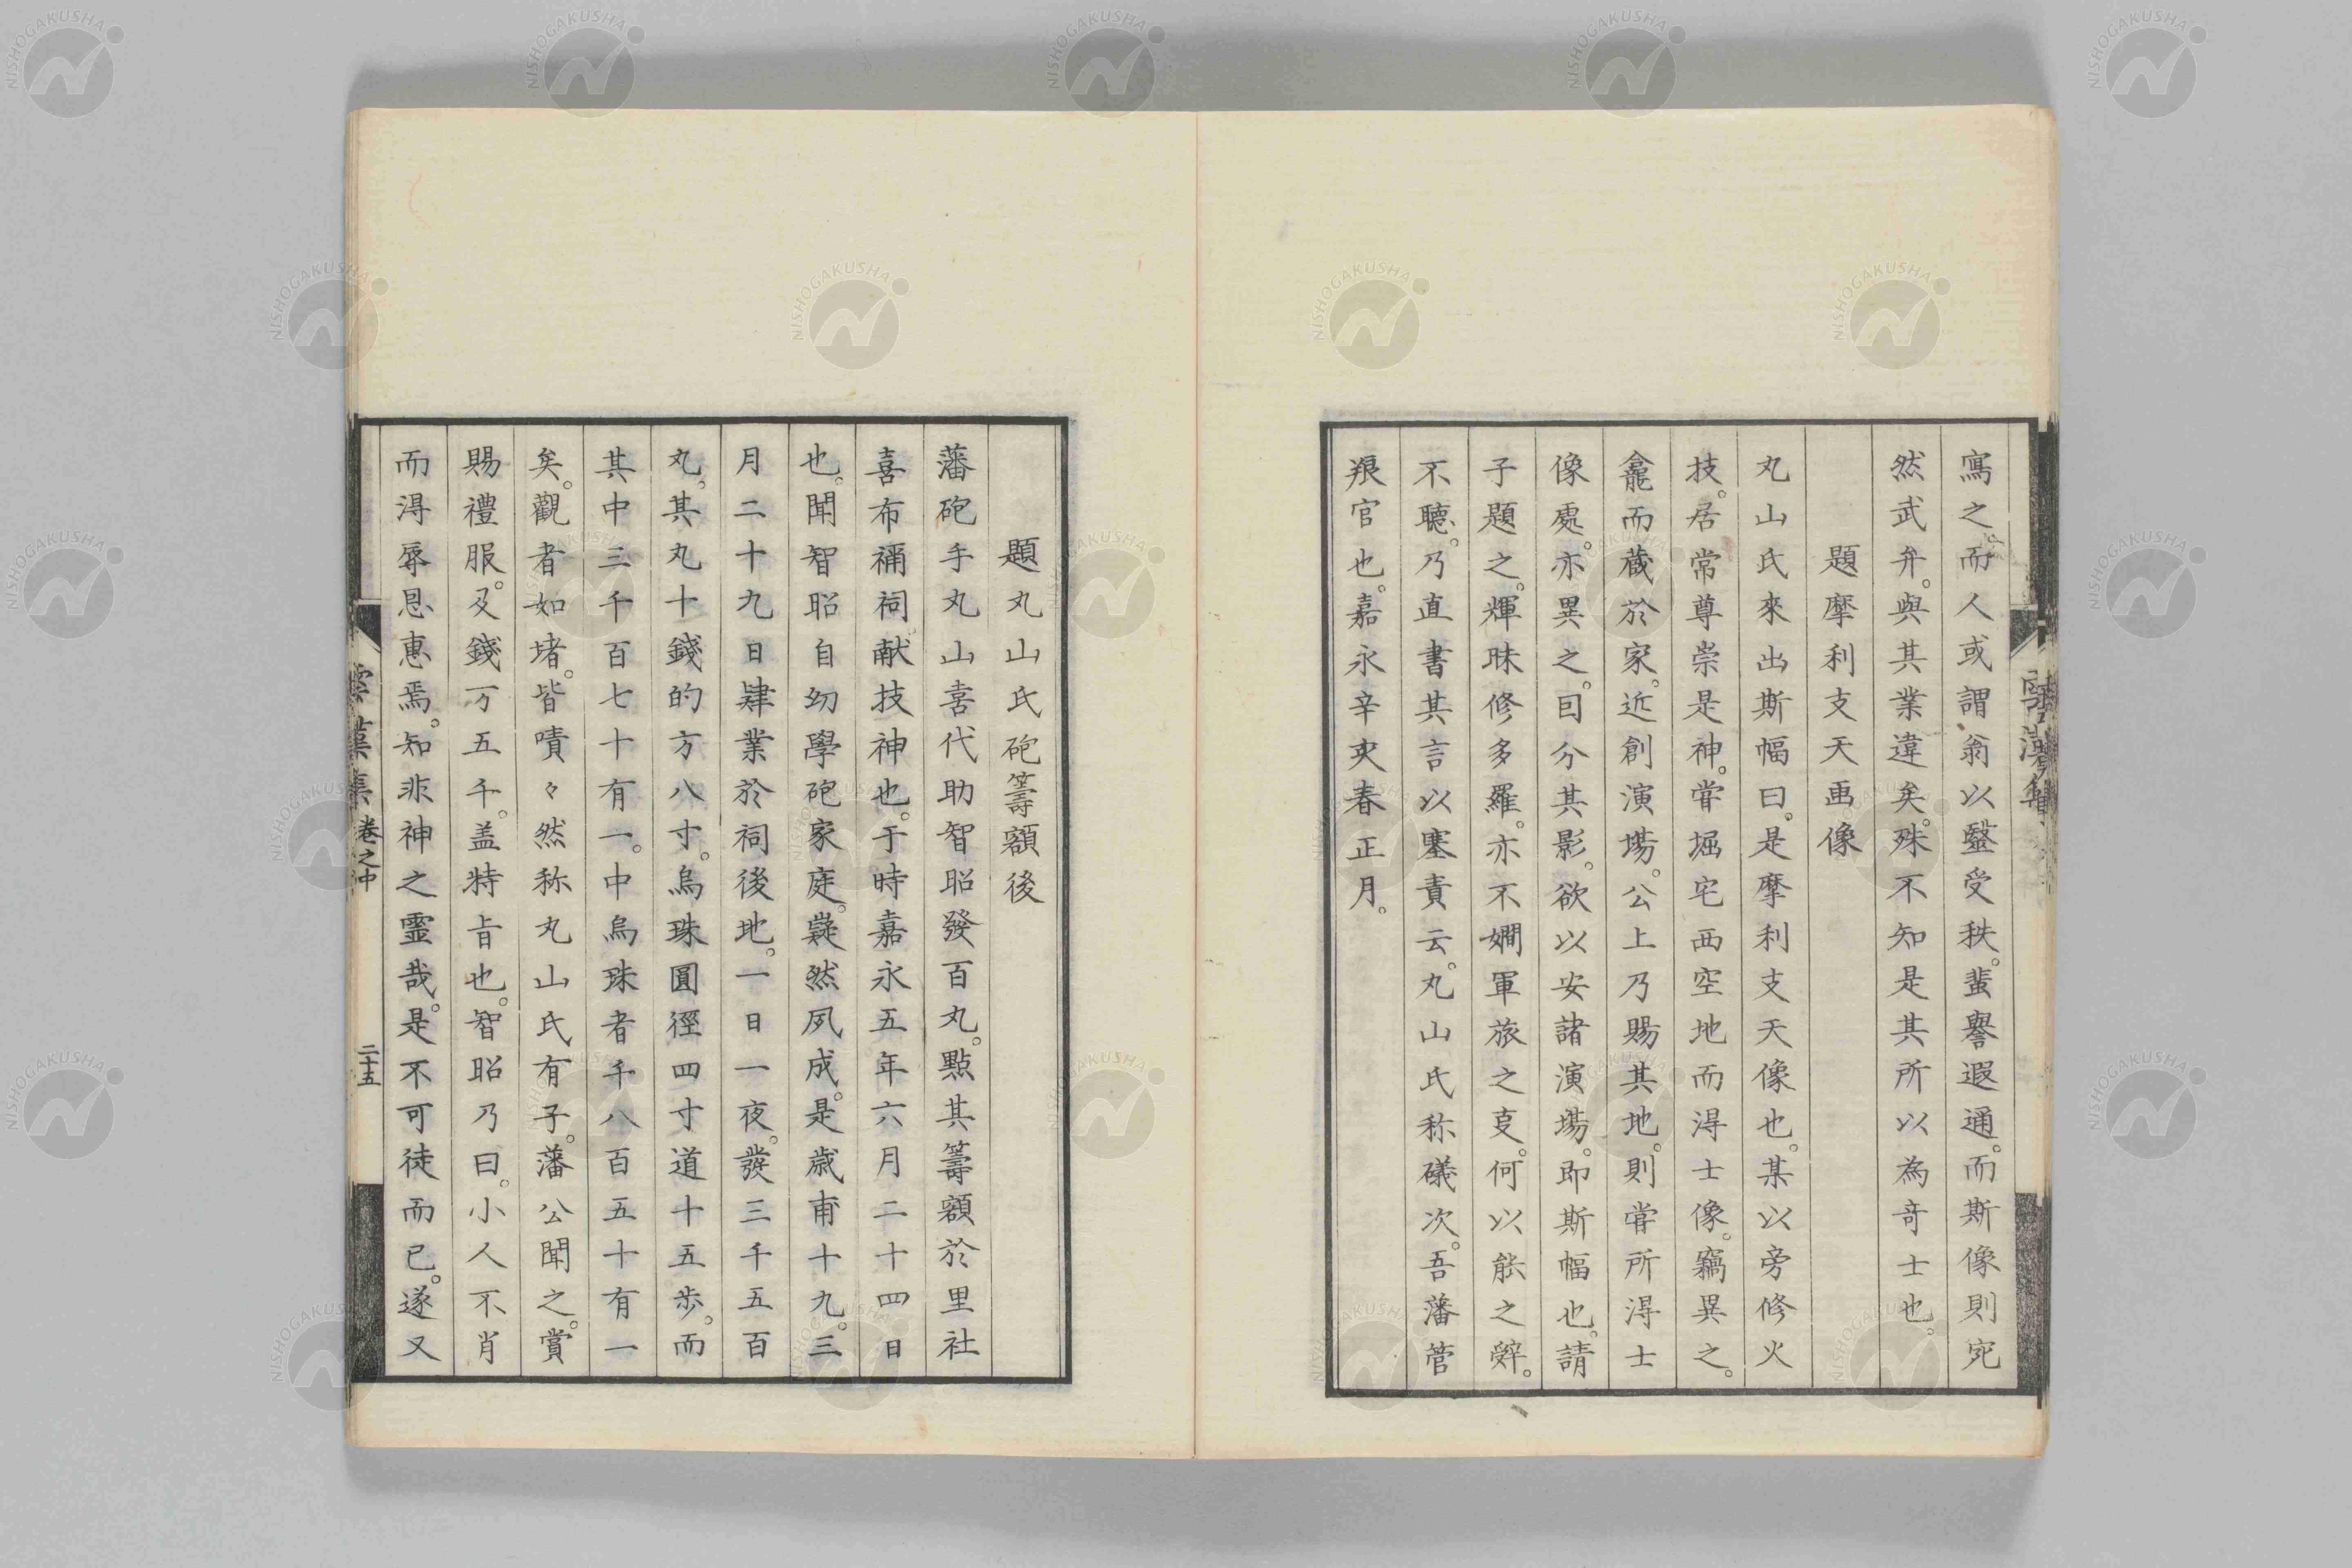 寫之。而人或謂翁以毉受秩。蜚譽遐通。而斯像則宛
然武弁。與其業違矣。殊不知是其所以為奇士也。
題摩利支天画像
丸山氏來出斯幅曰。是摩利支天像也。某以旁修火
技。居常尊崇是神。甞堀宅西空地而淂士像。竊異之。
龕而蔵於家。近創演場。公上乃賜其地。則甞所淂士
像處。亦異之。囙分其影。欲以安諸演場。即斯幅也。請
子題之。輝昧修多羅。亦不嫻軍旅之叓。何以能之辤。
不聴。乃直書其言以塞責云。丸山氏称礒次。吾藩管
粮官也。嘉永辛亥春正月。
題丸山氏砲籌額後
藩砲手丸山喜代助智昭發百丸。點其籌額於里社
喜布禰祠。献技神也。于時嘉永五年六月二十四日
也。聞智昭自幼學砲家庭。嶷然夙成。是歳甫十九。三
月二十九日肄業於祠後地。一日一夜。發三千五百
丸。其丸十錢的方八寸。烏珠圓徑四寸道十五歩。而
其中三千百七十有一。中烏珠者千八百五十有一
矣。觀者如堵。皆嘖々然称丸山氏有子。藩公聞之。賞
賜禮服。及錢万五千。盖特旨也。智昭乃曰。小人不肖
而淂辱恩惠焉。知非神之霊哉。是不可徒而已。遂又
卷之中
二十五
NISHOGAKUSHA